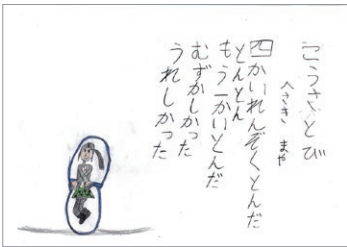 こうさとび
へさき まや
四かいれんぞくとんだ
とんとん
もう一かいとんだ
むずかしかった
うれしかった